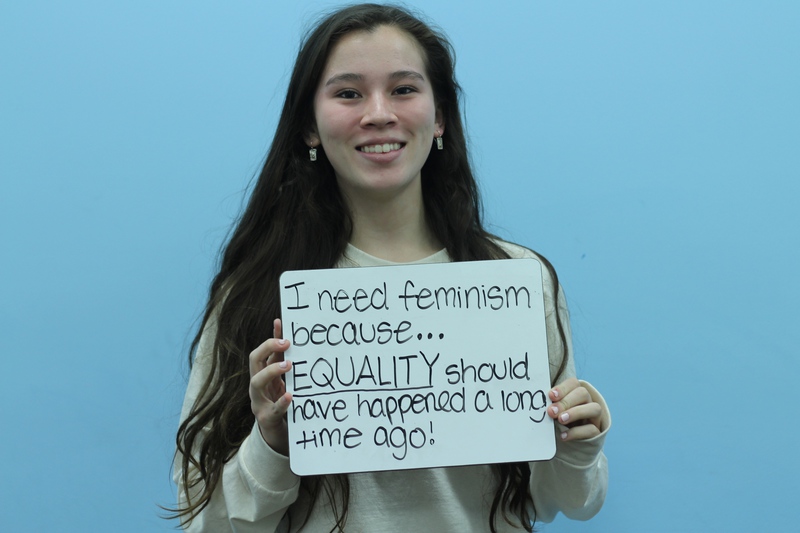 I need feminism
because...
EQUALITY should
have happened a long
time ago!